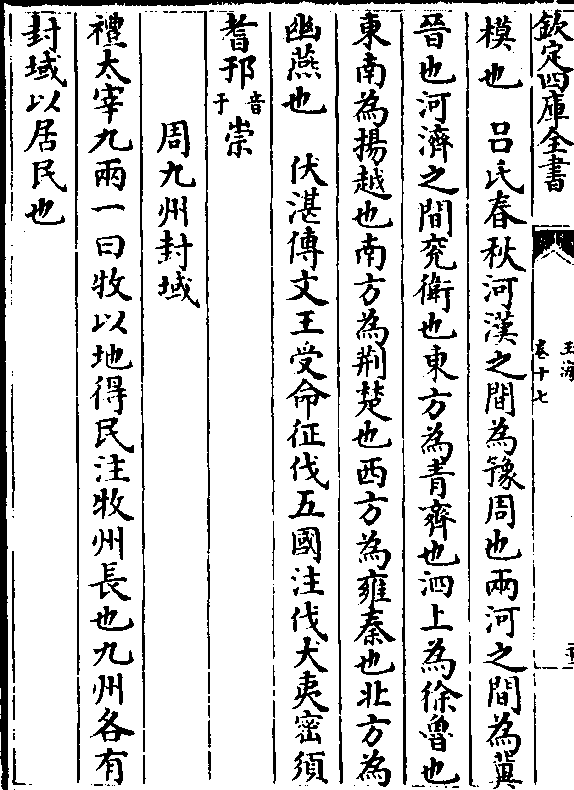 欽定四庫全書
玉海
卷十七
模也　呂氏春秋河漢之間為豫周也兩河之間為冀
晉也河濟之間兖衛也東方為青齊也泗上為徐魯也
東南為揚越也南方為荆楚也西方為雍秦也北方為
幽燕也　伏湛傳文王受命征伐五國注伐犬夷密須
耆邘音于崇
周九州封域
禮太宰九兩一曰牧以地得民注牧州長也九州各有
封域以居民也